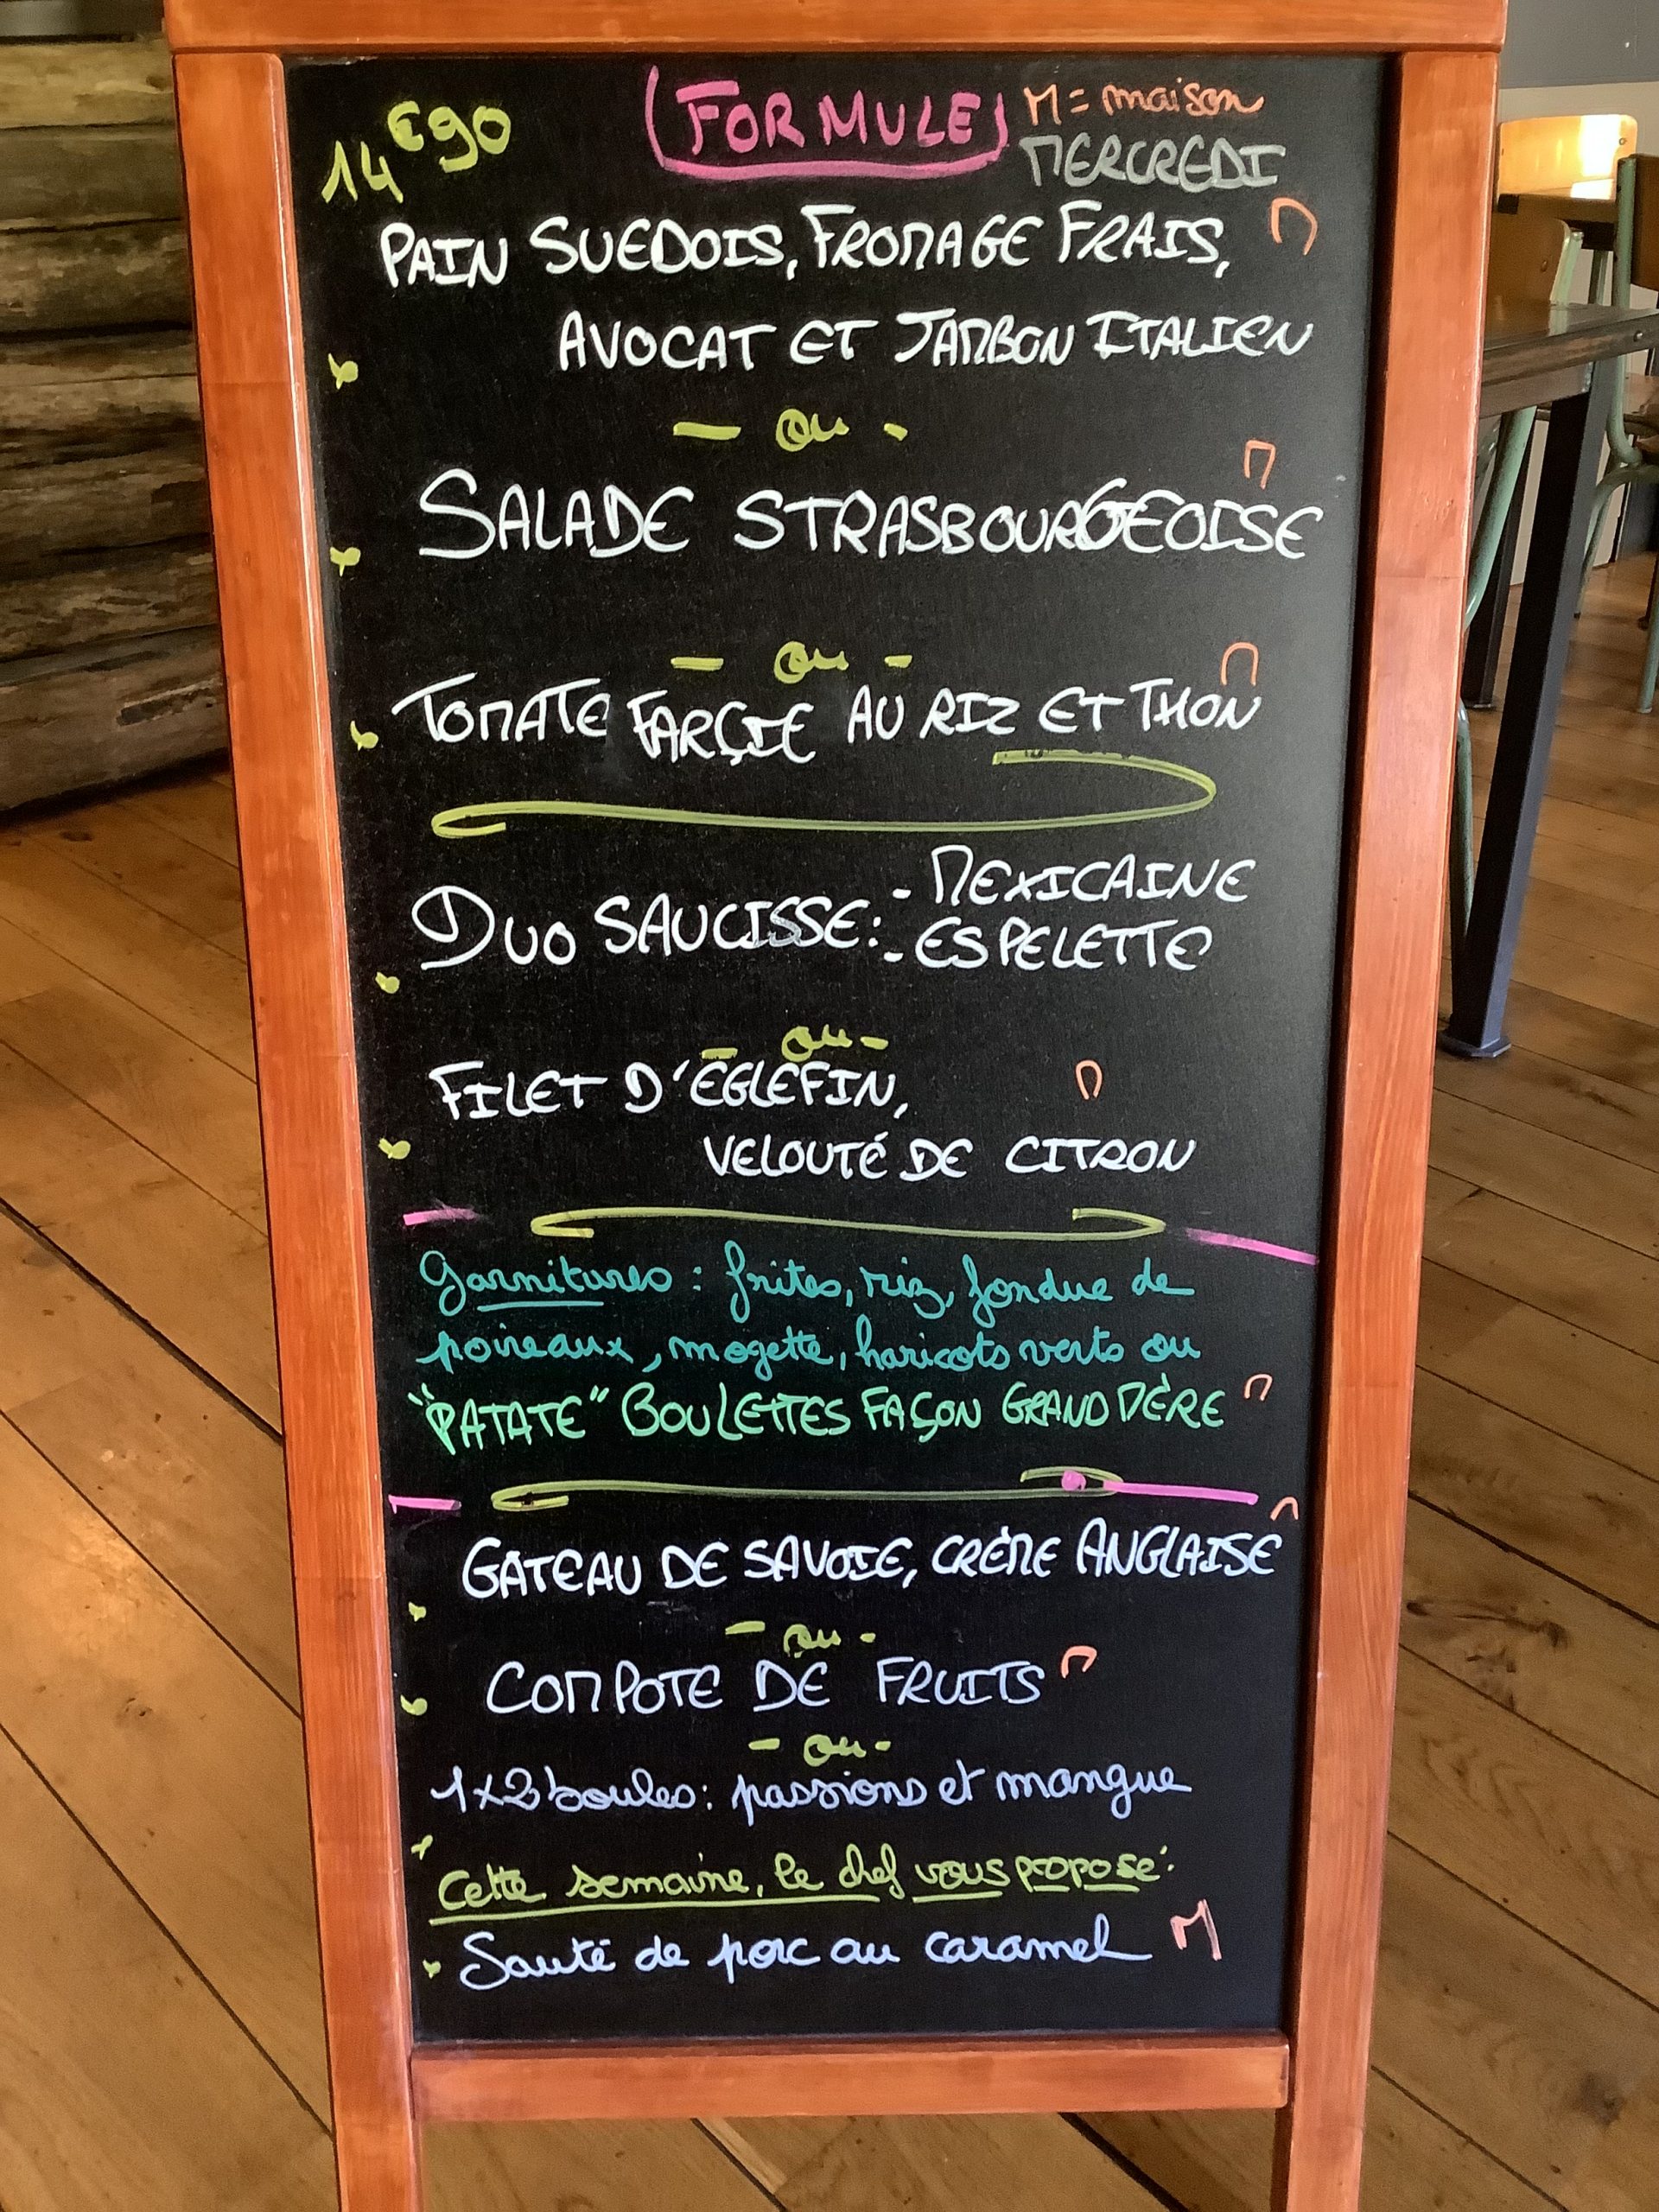 14€90
FORMULE
M = maison
MERCREDI
PAIN SUEDOIS, FROMAGE FRAIS, M
AVOCAT ET JAMBON ITALIEN
- ou -
M
SALADE STRASBOURGEOISE
- ou - M
TOMATE FARÇIE AU RIZ ET THON
DUO SAUCISSE: - MEXICAINE
- ESPELETTE
- ou -
FILET D'EGLEFIN, M
VELOUTÉ DE CITRON
Garnitures : frites, riz, fondue de
poireaux, mogette, haricots verts ou
"PATATE" BOULETTES FAÇON GRAND MÈRE M
M
GATEAU DE SAVOIE, CRÈME ANGLAISE
- ou -
COMPOTE DE FRUITS M
- ou -
1x2 boules : passions et mangue
Cette semaine, le chef vous propose :
Sauté de porc au caramel M